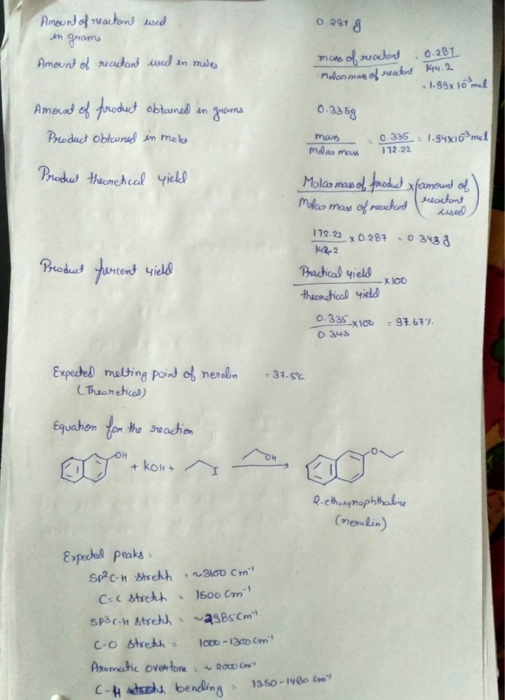 Amount of reactant used 0.287 g
in grams
Amount of reactant used in moles mass of reactant / Molar mass of reactant = 0.287 / 144.2
= 1.99x10⁻³ mol
Amount of product obtained in grams 0.335g
Product obtained in moles mass / molar mass = 0.335 / 172.22 = 1.94x10⁻³ mol
Product theoretical yield Molar mass of product / Molar mass of reactant x (amount of reactant used)
172.22 / 142.2 x 0.287 = 0.343 g
Product percent yield Practical yield / theoretical yield x100
0.335 / 0.343 x100 = 97.67%
Expected melting point of nerolin = 37.5°C
(Theoretical)
Equation for the reaction
OH + KOH + I OH O
2-ethoxynaphthalene
(nerolin)
Expected peaks:
SP²C-H stretch = ~3100 cm⁻¹
C=C stretch = 1600 cm⁻¹
SP3C-H stretch = ~2985 cm⁻¹
C-O stretch = 1000-1300 cm⁻¹
Aromatic overtone = ~2000 cm⁻¹
C-H bending = 1350-1480 cm⁻¹